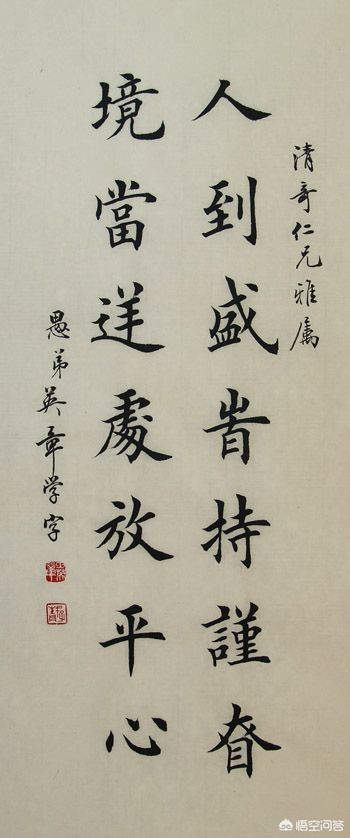 清哥仁兄雅属
人到盛旹持謹昚
境當逆處放平心
愚弟英章学字
悟空问答